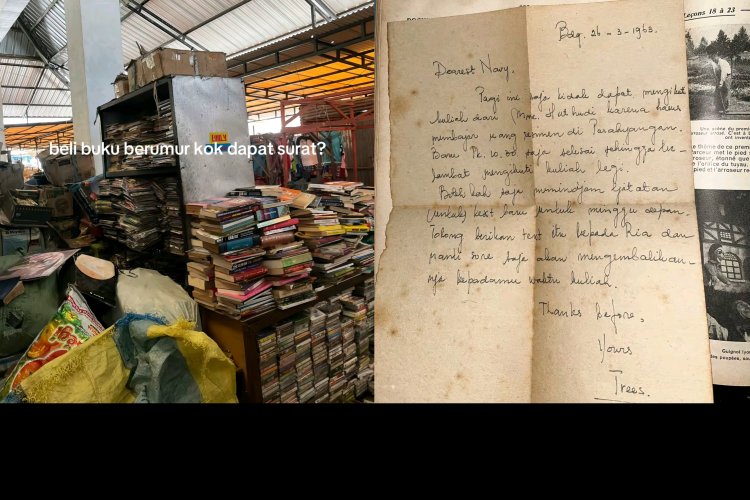 beli buku berumur kok dapat surat?
Bdg. 26 - 3 - 1963.
Dearest Navy.
Pagi ini saja tidak dapat mengikut
kuliah dari Mme. karena harus
membayar uang di Parahyangan.
Baru Pk. 10.00 saja selesai sehingga ter-
lambat mengikuti kuliah lagi.
Boleh kah saja memindjam tjatatan
text baru untuk minggu depan.
Tolong berikan text itu kepada Ria dan
nanti sore saja akan mengembalikan-
nja kepadamu waktu kuliah.
Thanks before,
Yours
Trees.
Leçons 18 à 23
Une scène du premie
Guignol lyon